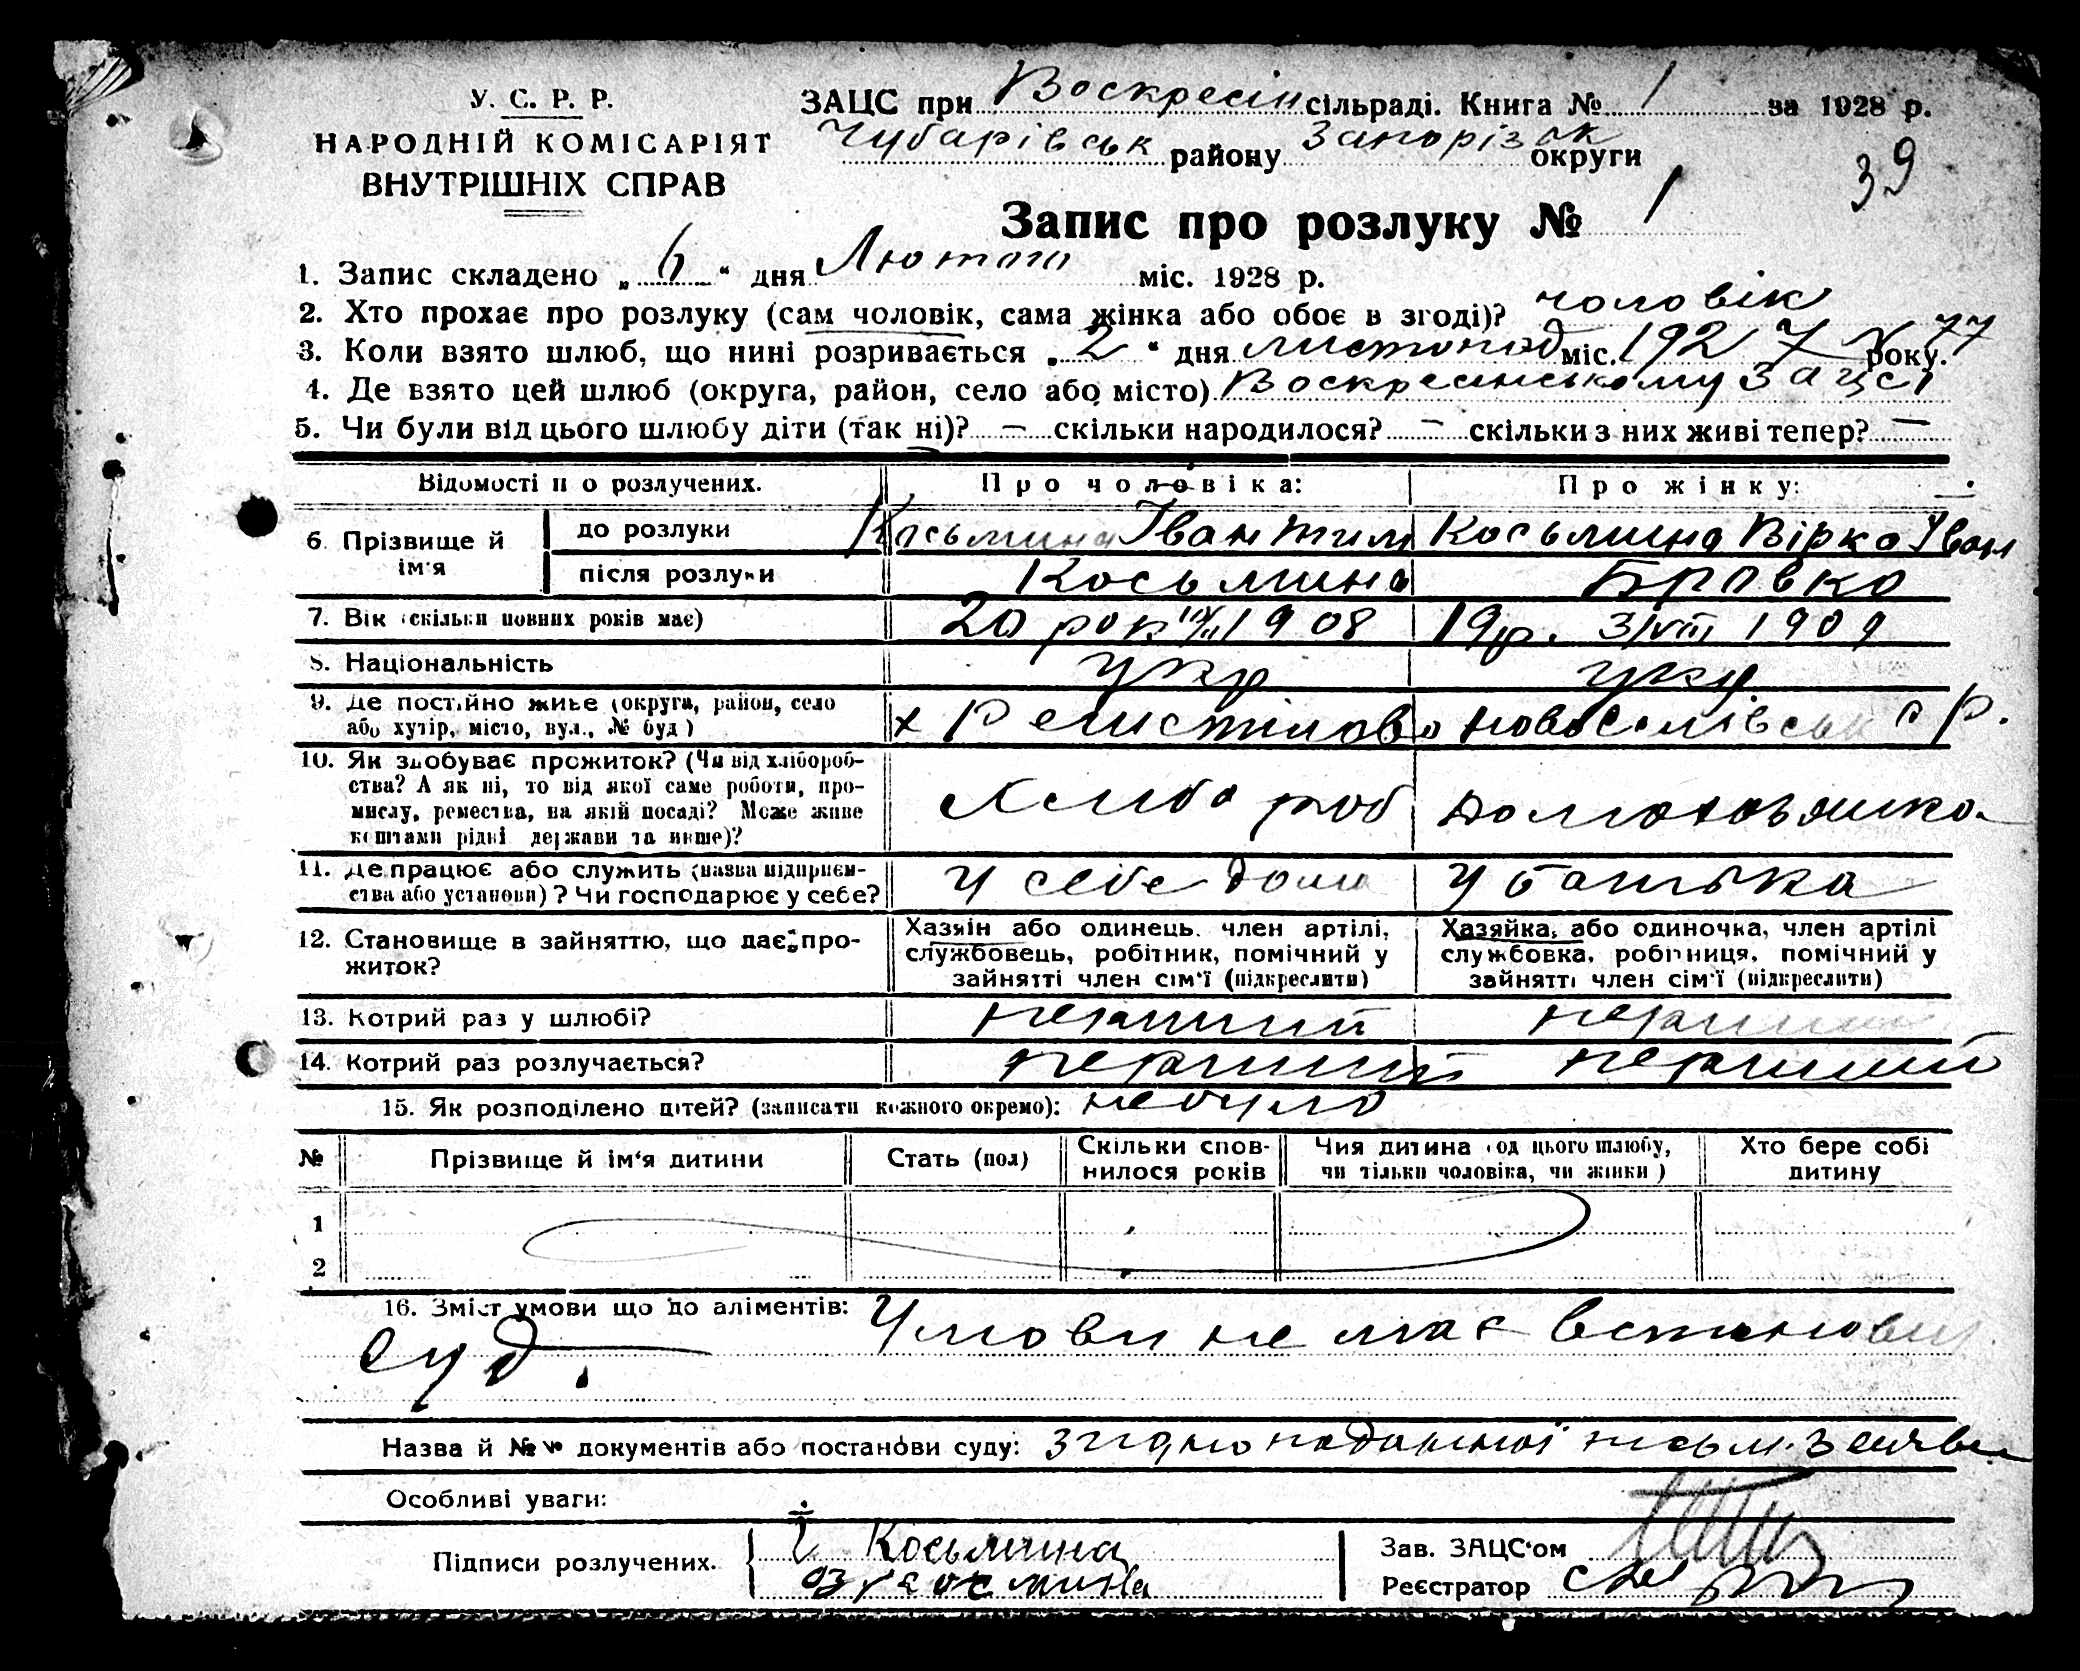 У. С. Р. Р.
НАРОДНІЙ КОМІСАРІЯТ
ВНУТРІШНІХ СПРАВ
ЗАЦС при Воскресін сільраді. Книга № 1 за 1928 р.
Чубарівськ району Запорізьк округи
39
Запис про розлуку № 1
1. Запис складено „ 6 “ дня Лютого міс. 1928 р.
2. Хто прохає про розлуку (сам чоловік, сама жінка або обоє в згоді)? чоловік
3. Коли взято шлюб, що нині розривається „ 2 “ дня листопад міс. 1927 року. № 77
4. Де взято цей шлюб (округа, район, село або місто) Воскресинському Зацсі
5. Чи були від цього шлюбу діти (так ні)? — скільки народилося? — скільки з них живі тепер? —
Відомості п о розлучених. Про чоловіка: Про жінку:
6. Прізвище й ім'я до розлуки Косьмина Іван Тим Косьмина Вірка Іван
після розлуки Косьмина Бровко
7. Вік (скільки повних років має) 20 рок 1908 19 р. 3/VIII 1909
8. Національність укр укр.
9. Де постійно живе (округа, район, село або хутір, місто, вул., № буд.) х Ремстілово Новоселівськ р.
10. Як здобуває прожиток? (Чи від хлібороб-
ства? А як ні, то від якої саме роботи, про-
мислу, ремества, на якій посаді? Може живе
коштами рідні держави та инше)? Хлибороб Домохозяйка
11. Де працює або служить (назва підприєм-
ства або установи)? Чи господарює у себе? У себе дома У батька
12. Становище в зайняттю, що дає про-
житок?
Хазяїн або одинець, член артілі,
службовець, робітник, помічний у
зайнятті член сім'ї (підкреслити)
Хазяйка, або одиночка, член артілі
службовка, робітниця, помічний у
зайнятті член сім'ї (підкреслити)
13. Котрий раз у шлюбі? перший перший
14. Котрий раз розлучається? перший перший
15. Як розподілено дітей? (записати кожного окремо): небуло
№ Прізвище й ім'я дитини Стать (пол) Скільки спов-
нилося років Чия дитина (од цього шлюбу,
чи тільки чоловіка, чи жінки) Хто бере собі
дитину
1
2
16. Зміст умови що до аліментів: Умови не має встановить
суд.
Назва й №№ документів або постанови суду: згидно поданної письм. заяви
Особливі уваги:
Підписи розлучених. І Косьмина
Космина
Зав. ЗАЦС'ом
Реєстратор